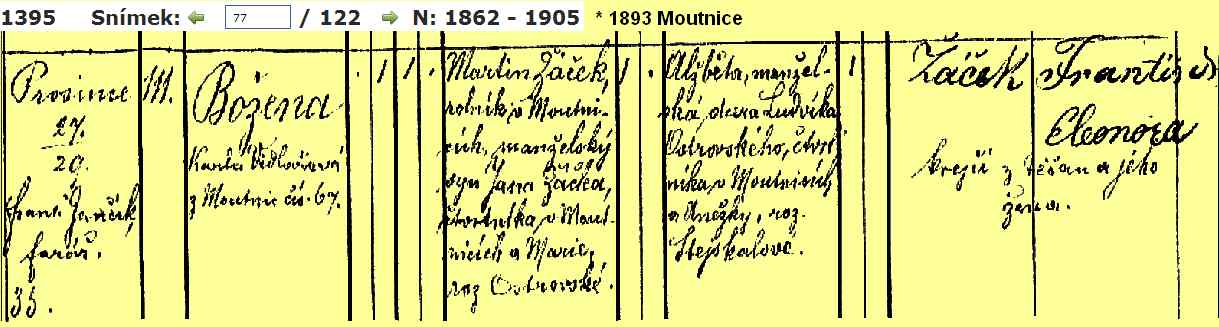 1395 Snímek: 77 / 122 N: 1862 - 1905 * 1893 Moutnice
Prosinec
27.
29.
Frant. Jančík,
farář.
35.
111.
Božena
Karla Vidlářová
z Moutnic čís. 67.
1 1
Martin Žáček,
rolník v Moutni-
cích, manželský
syn Jana Žáčka,
čtvrtníka v Mout-
nicích a Marie,
roz Ostrovské.
1
Alžběta, manžel-
ská dcera Ludvíka
Ostrovského, čtvrt
níka v Moutnicích
a Anežky, roz.
Stejskalové.
1
Žáček František
Eleonora
krejčí z Těšan a jeho
žena.